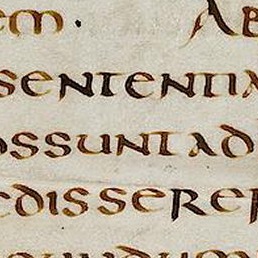 em. AB
SENTENTIA
OSSUNTAD
EDISSERER